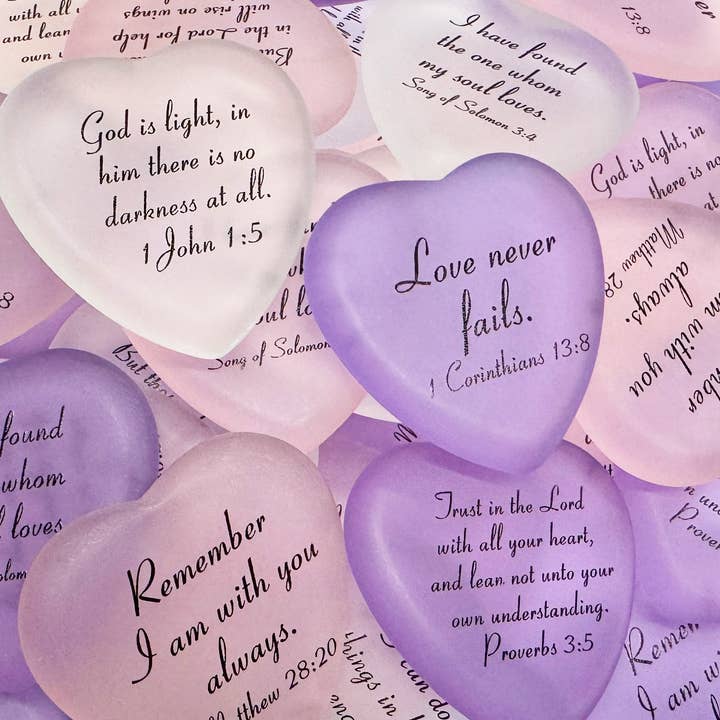 with all
and lean
own
But
in the Lord for help
will rise on wings
I have found
the one whom
my soul loves.
Song of Solomon 3:4
13:8
God is light, in
him there is no
darkness at all.
1 John 1:5
God is light, in
there is no
Love never
fails.
1 Corinthians 13:8
Matthew 28
always.
with you
Song of Solomon
But
found
whom
loves
Remember
I am with you
always.
Matthew 28:20
Trust in the Lord
with all your heart,
and lean not unto your
own understanding.
Proverbs 3:5
things in
can do
I am